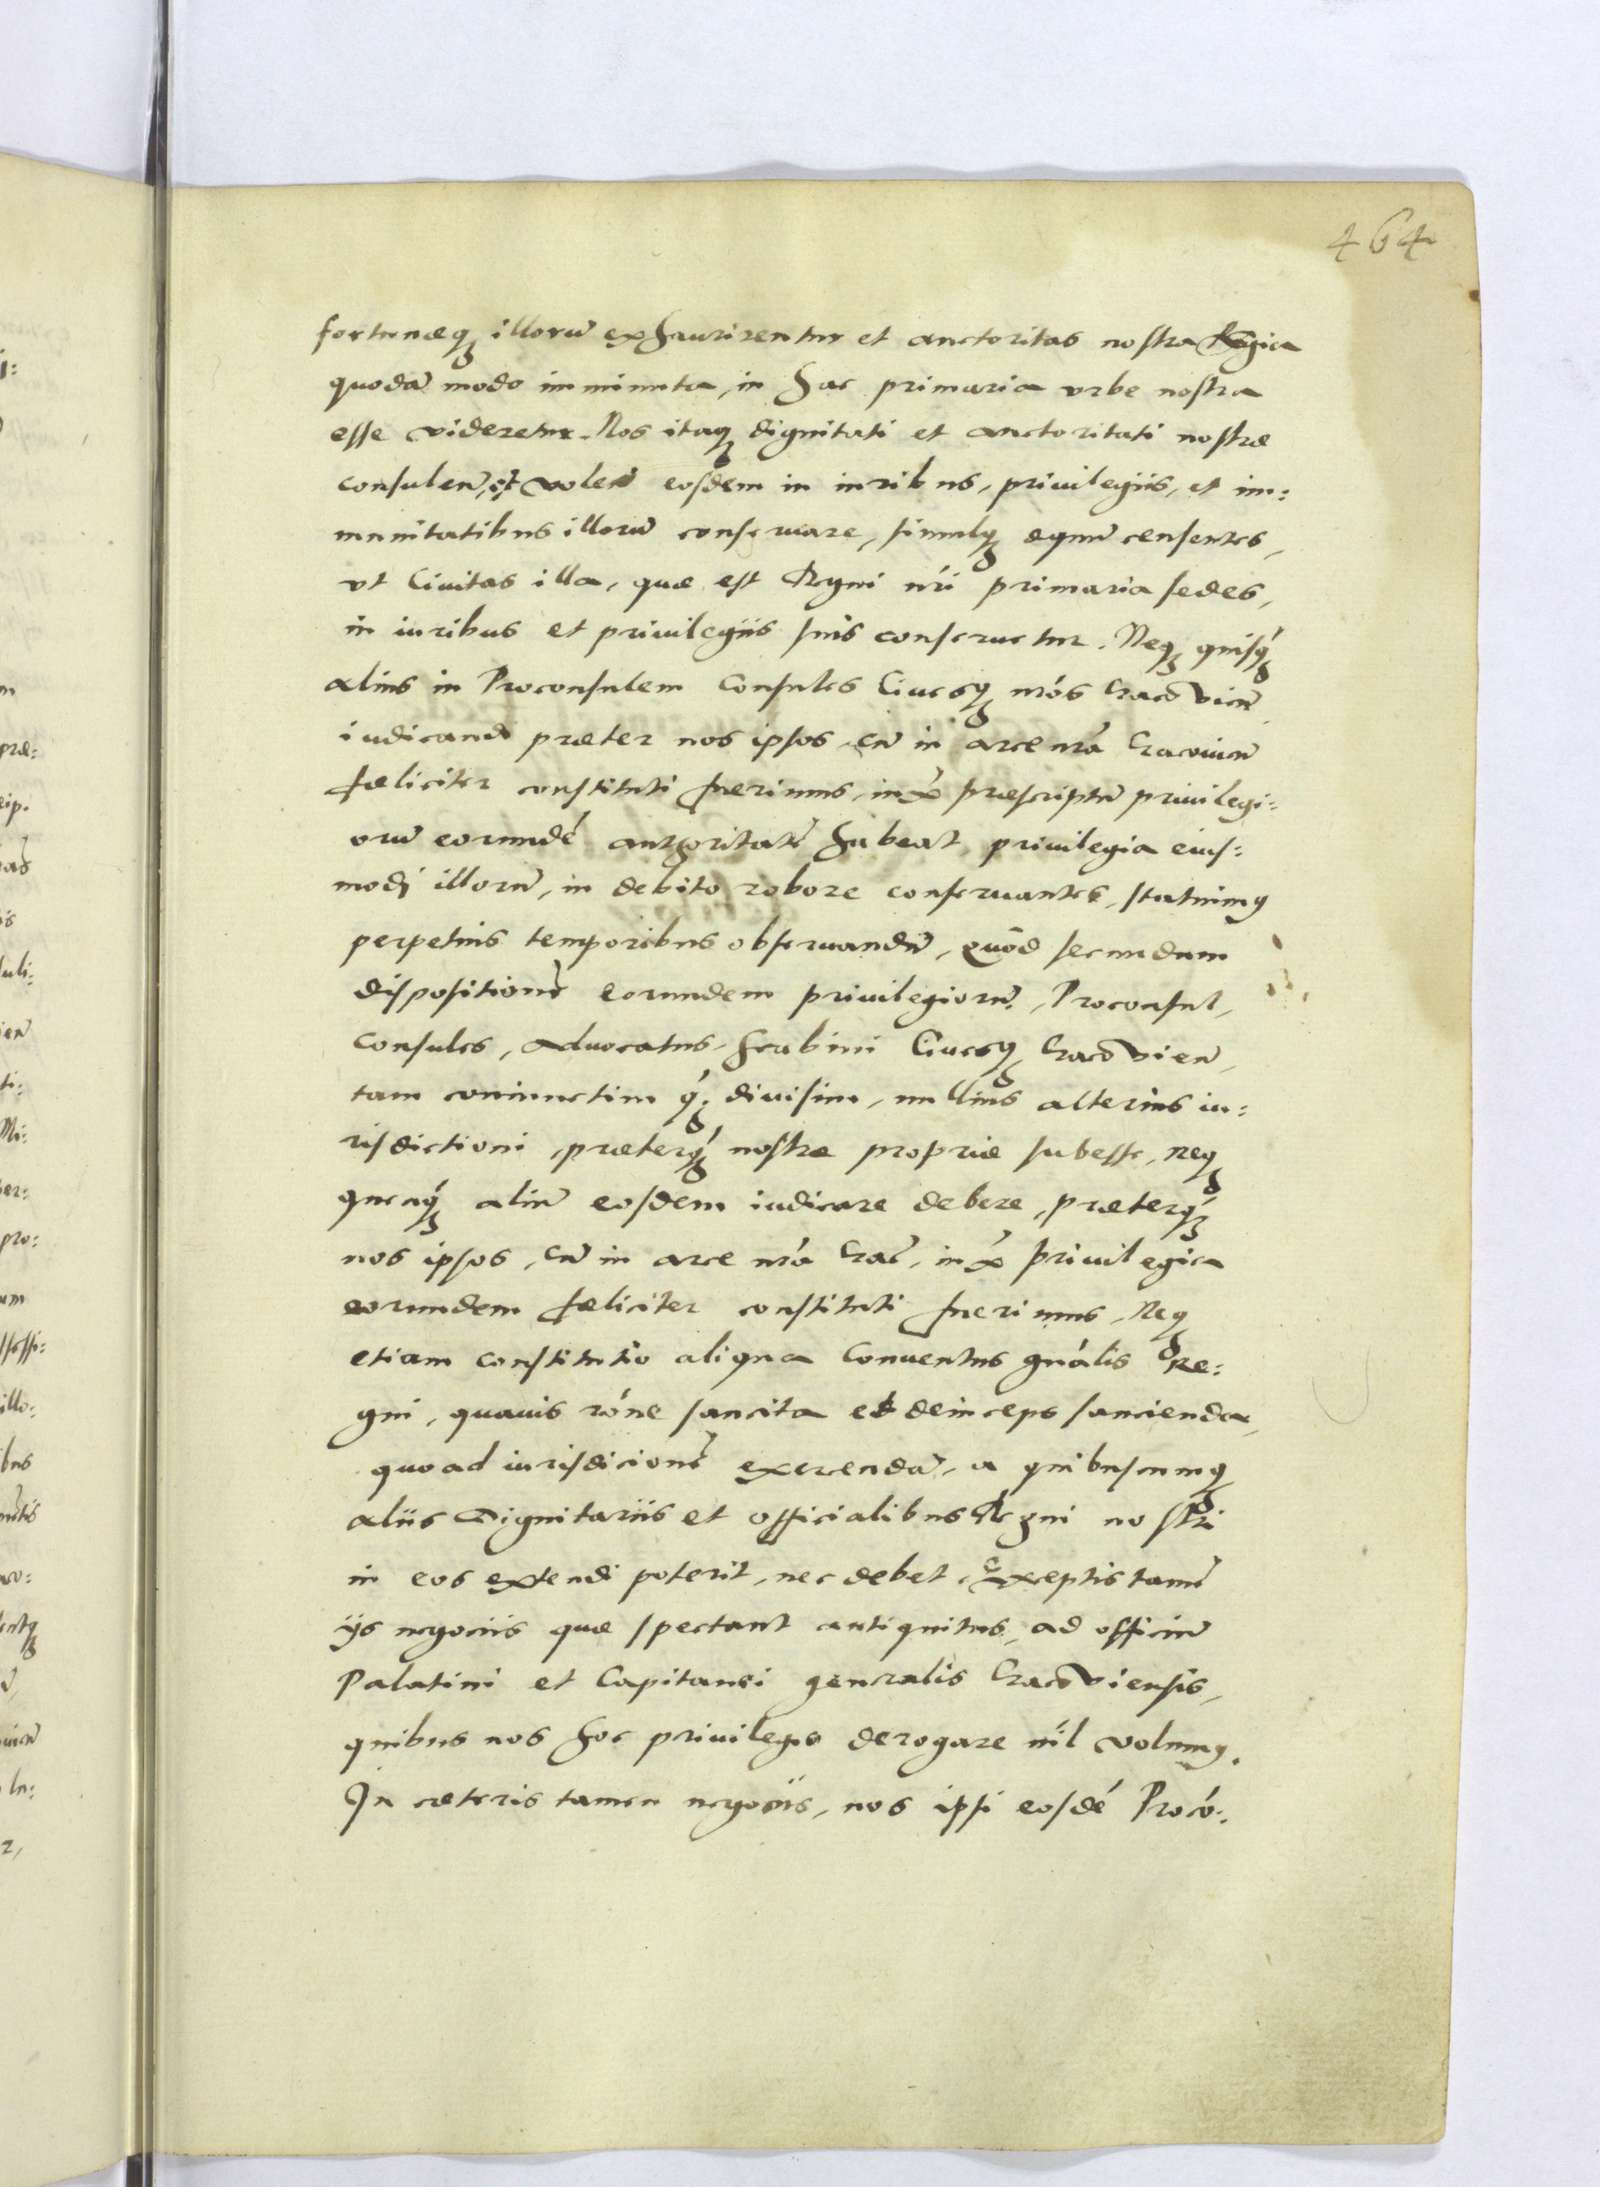 464
fortunæq illorū exhaurirentur et auctoritas nostra Regia
quodā modo imminuta, in hac primaria vrbe nostra
esse videretur. Nos itaq dignitati et auctoritati nostræ
consulen, et volen eosdem in iuribus, priuilegiis, et im:
munitatibus illorū conseruare, simulq equū censentes,
vt Ciuitas illa, quæ est Regni nri primaria sedes,
in iuribus et priuilegiis suis conseruetur. Neq quisq
alius in Proconsulem Consules Ciuesq nros Cracouien
iudicandi præter nos ipsos, cū in arce nra Cracouien
fæliciter constituti fuerimus, iux præscriptū priuilegi:
orū eorundē authoritatē habeat, priuilegia eius:
modi illorū, in debito robore conseruantes, statuimq
perpetuis temporibus obseruandū, quōd secundum
dispositionē eorundem priuilegiorū, Proconsul,
Consules, Aduocatus, Scabini Ciuesq Cracouien,
tam coniunctim q, diuisim, nullius alterius iu:
risdictioni, præterq nostræ propriæ subesse, neq
quenq aliū eosdem iudicare debere, præterq
nos ipsos, cū in arce nra Crac, iux priuilegia
eorundem fæliciter constituti fuerimus, Neq
etiam constitutio aliqua Conuentus gnalis Re:
gni, quauis rone sancita et deinceps sancienda,
quo ad iurisdicionē exercendā, a quibuscunq
aliis Dignitariis et officialibus Regni nostri
in eos extendi poterit, nec debet. Exceptis tamē
ijs negociis quæ spectant antiquitus, ad officiū
Palatini et Capitanei generalis Cracouiensis,
quibus nos hoc priuilegio derogare nil volumq.
In cæteris tamen negociis, nos ipsi eosdē Procō: